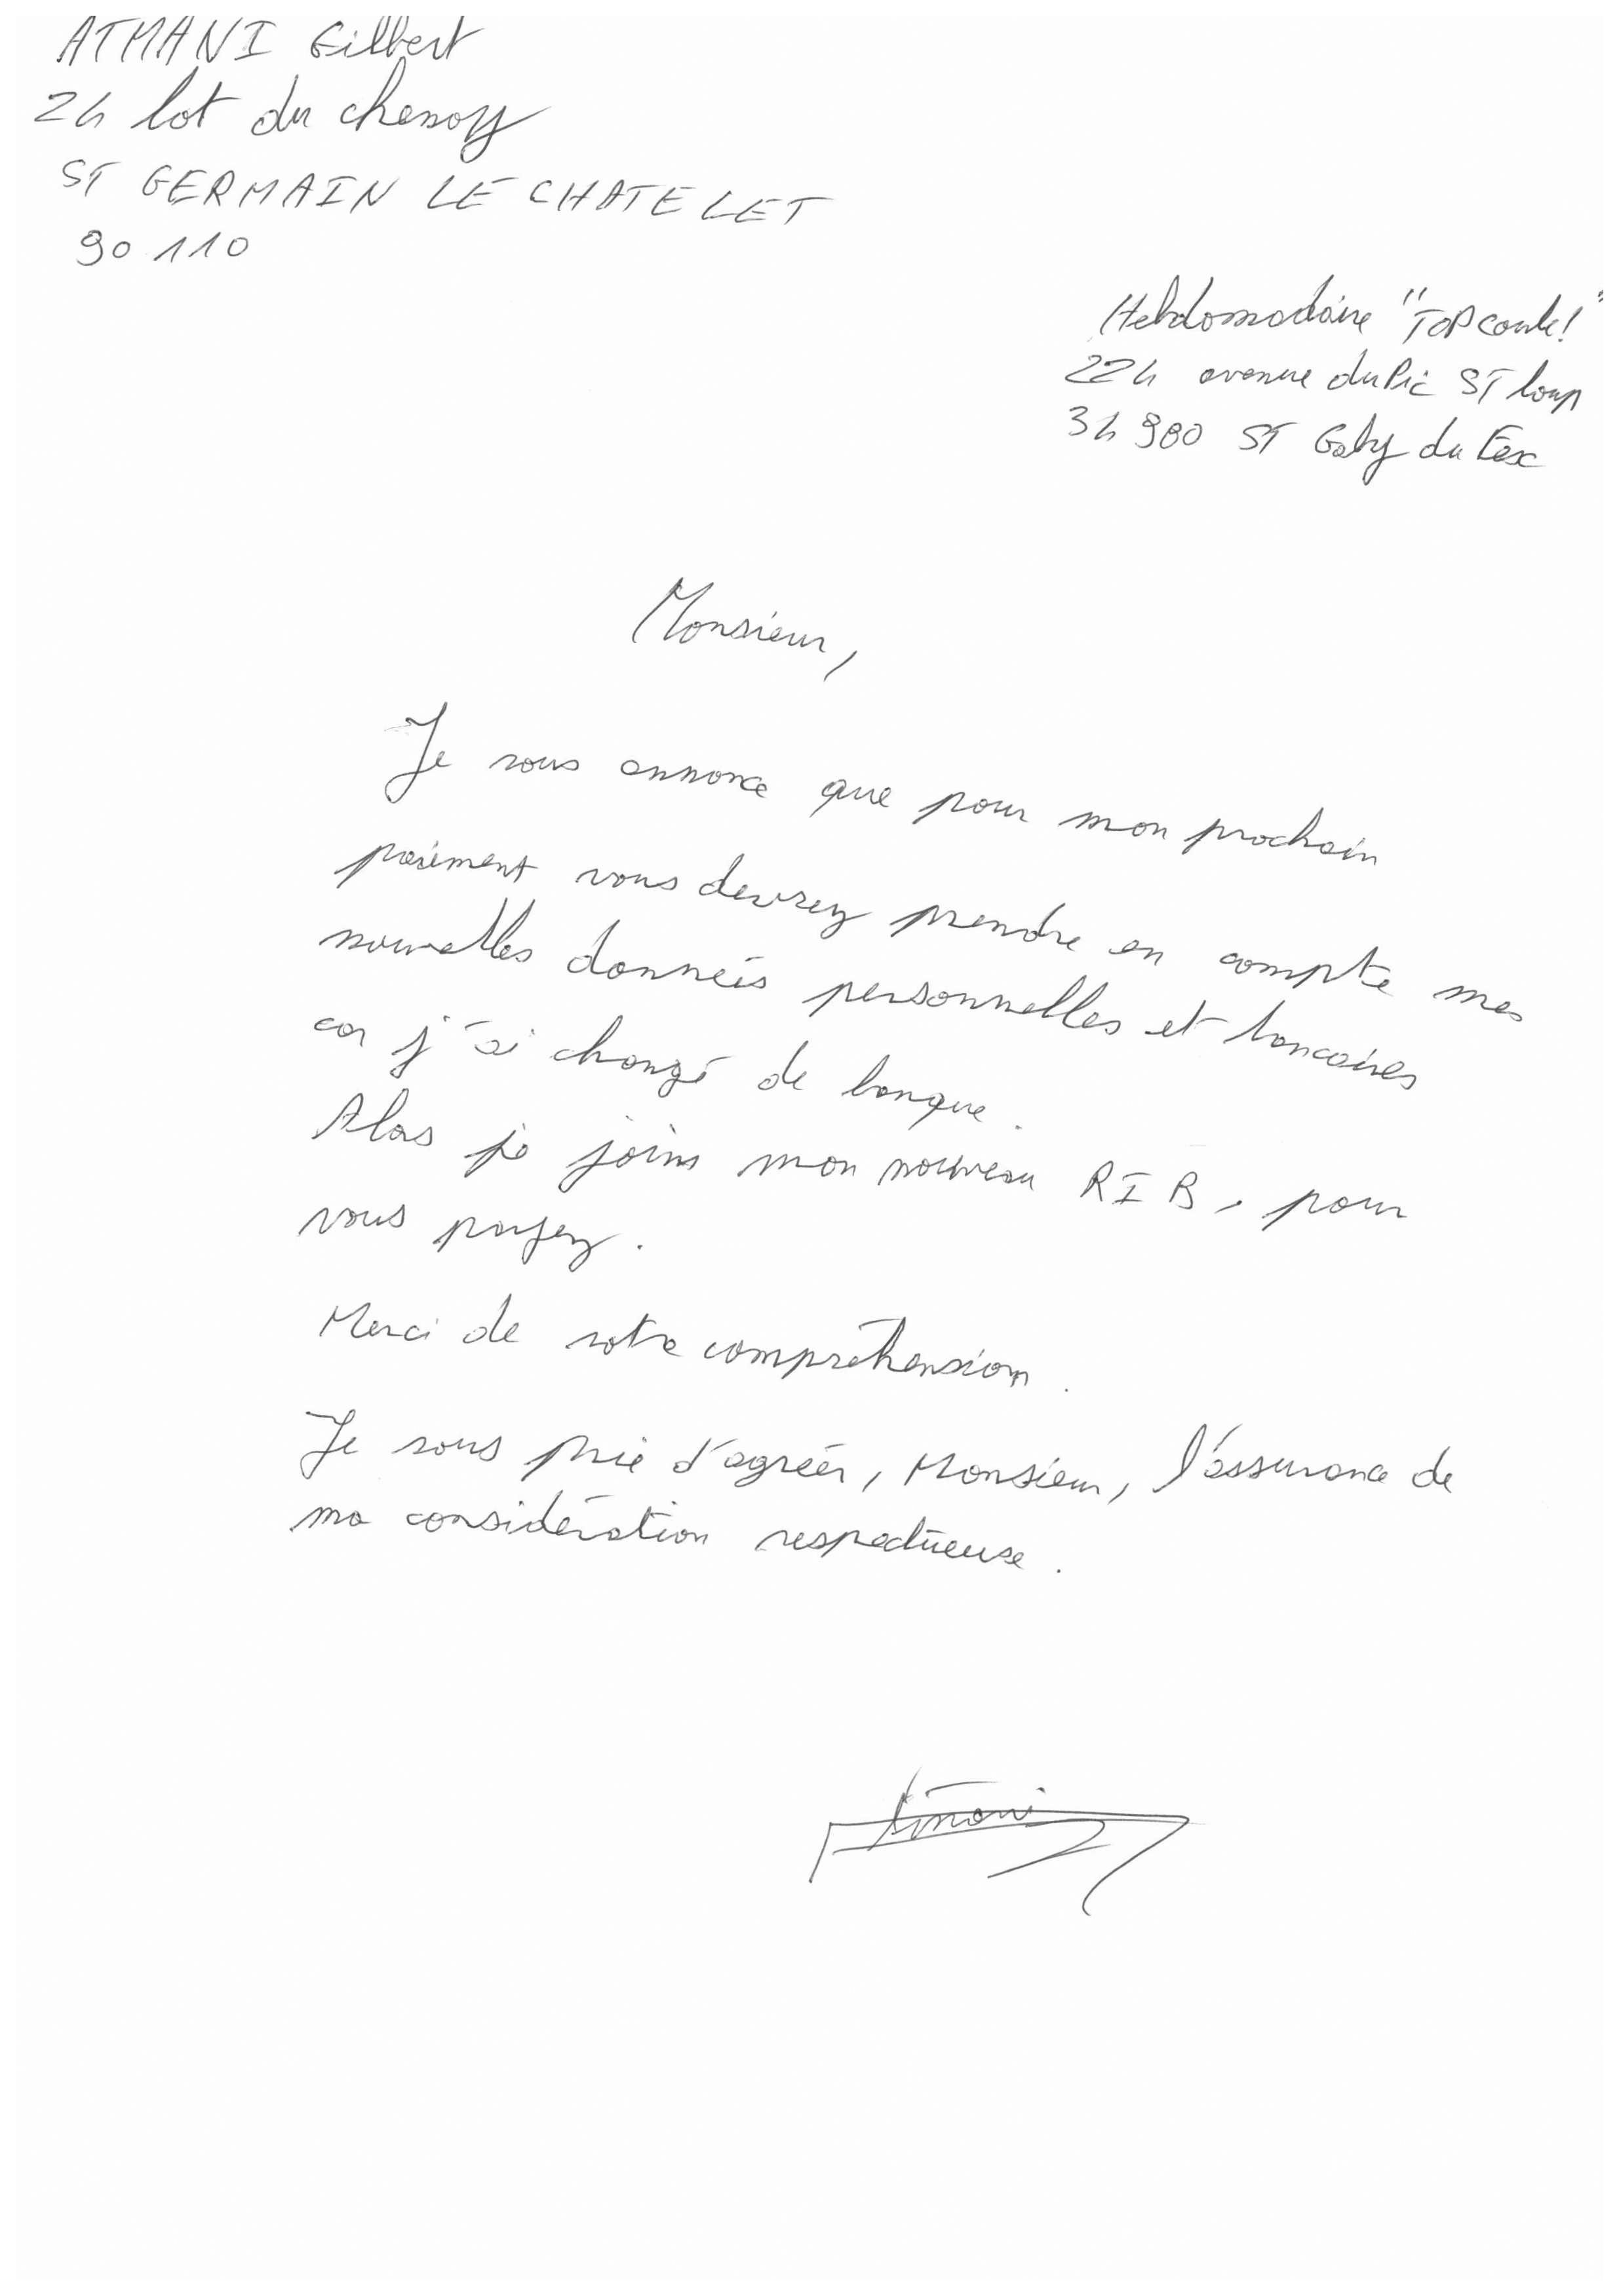 ATMANI Gilbert
24 lot du chesnoy
ST GERMAIN LE CHATELET
90 110
Hebdomadaire "TOP comte!"
224 avenue du Pic ST loup
34 980 ST Gely du Fesc
Monsieur,
Je vous annonce que pour mon prochain
paiement vous devrez prendre en compte mes
nouvelles données personnelles et bancaires
car j'ai changé de banque.
Alos je joins mon nouveau RIB, pour
vous payez.
Merci de votre compréhension.
Je vous prie d'agréér, Monsieur, l'assurance de
ma considération respectueuse.